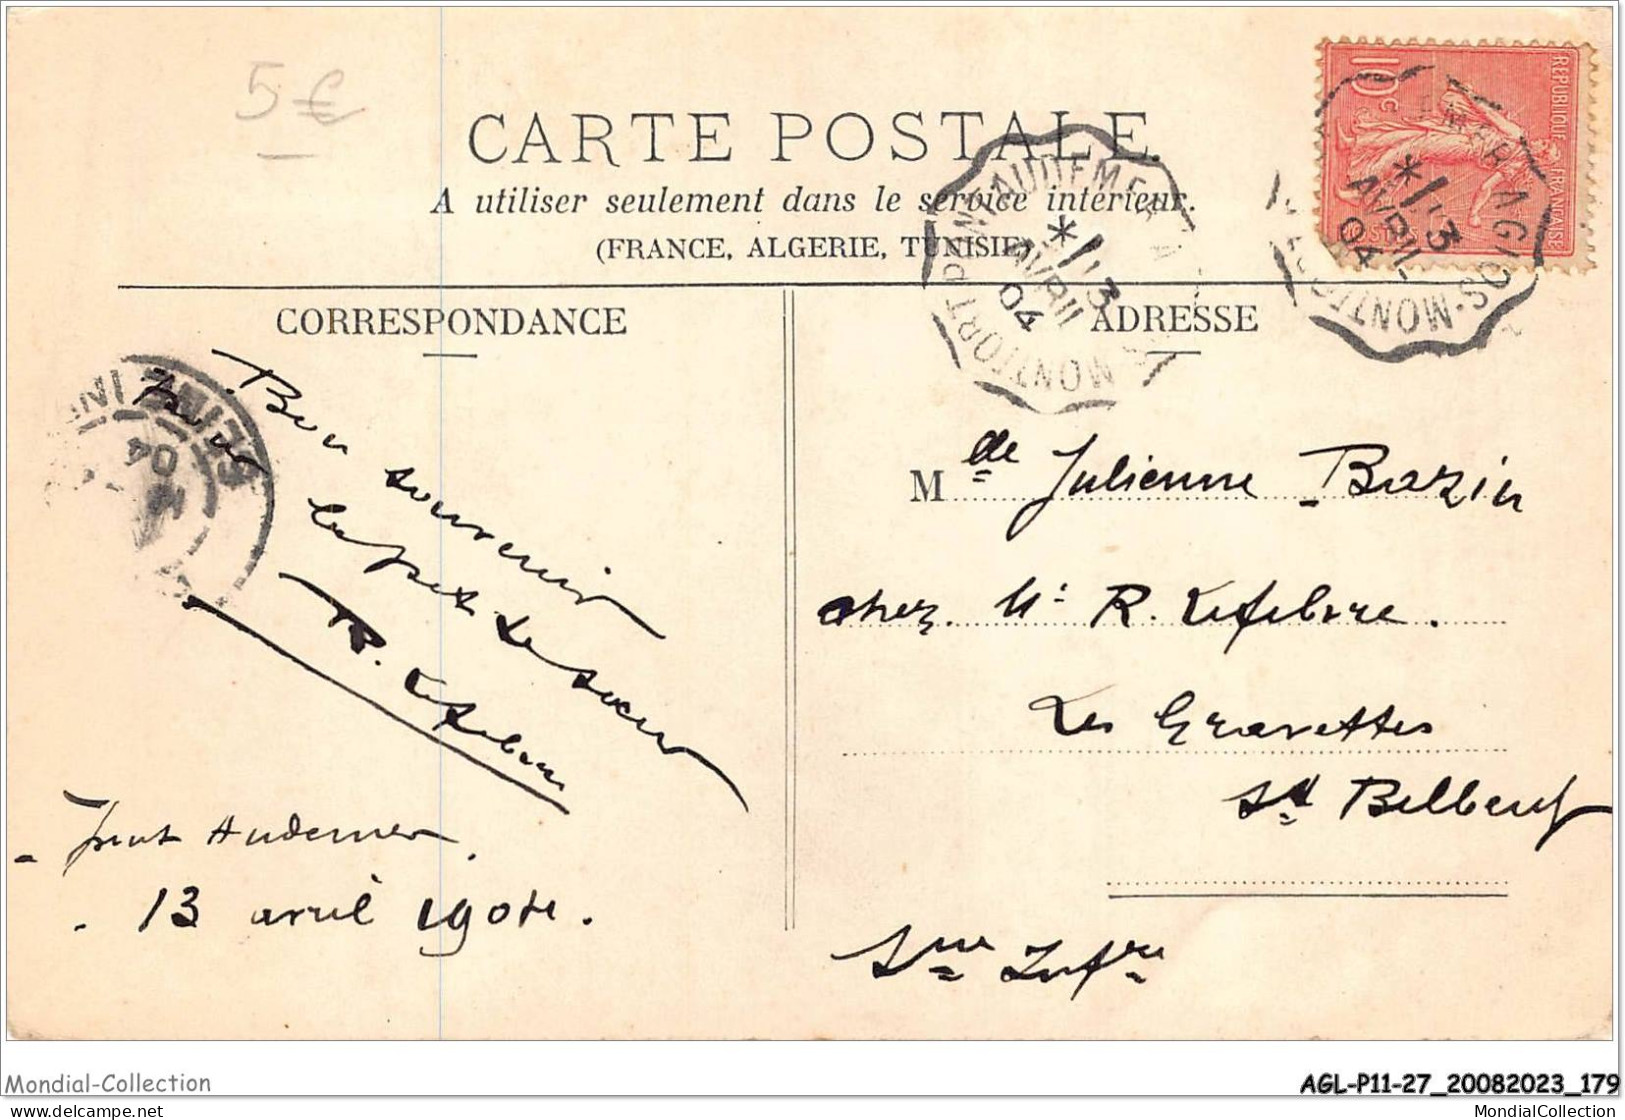 5€
CARTE POSTALE.
A utiliser seulement dans le service intérieur.
(FRANCE, ALGERIE, TUNISIE)
CORRESPONDANCE
ADRESSE
Bon souvenir
R. Lefebvre
Pont Audemer.
13 avril 1904.
Mde Julienne Bazin
chez Mr R. Lefebvre.
Les Gravettes
St Belbeuf
Sne Infre
10c
REPUBLIQUE FRANÇAISE
POSTES
PONT AUDEMER A
MONTFORT
13
AVRIL
04
MONTFORT
13
AVRIL
04
SEINE IN
04
Mondial-Collection
AGL-P11-27_20082023_179
www.delcampe.net
MondialCollection